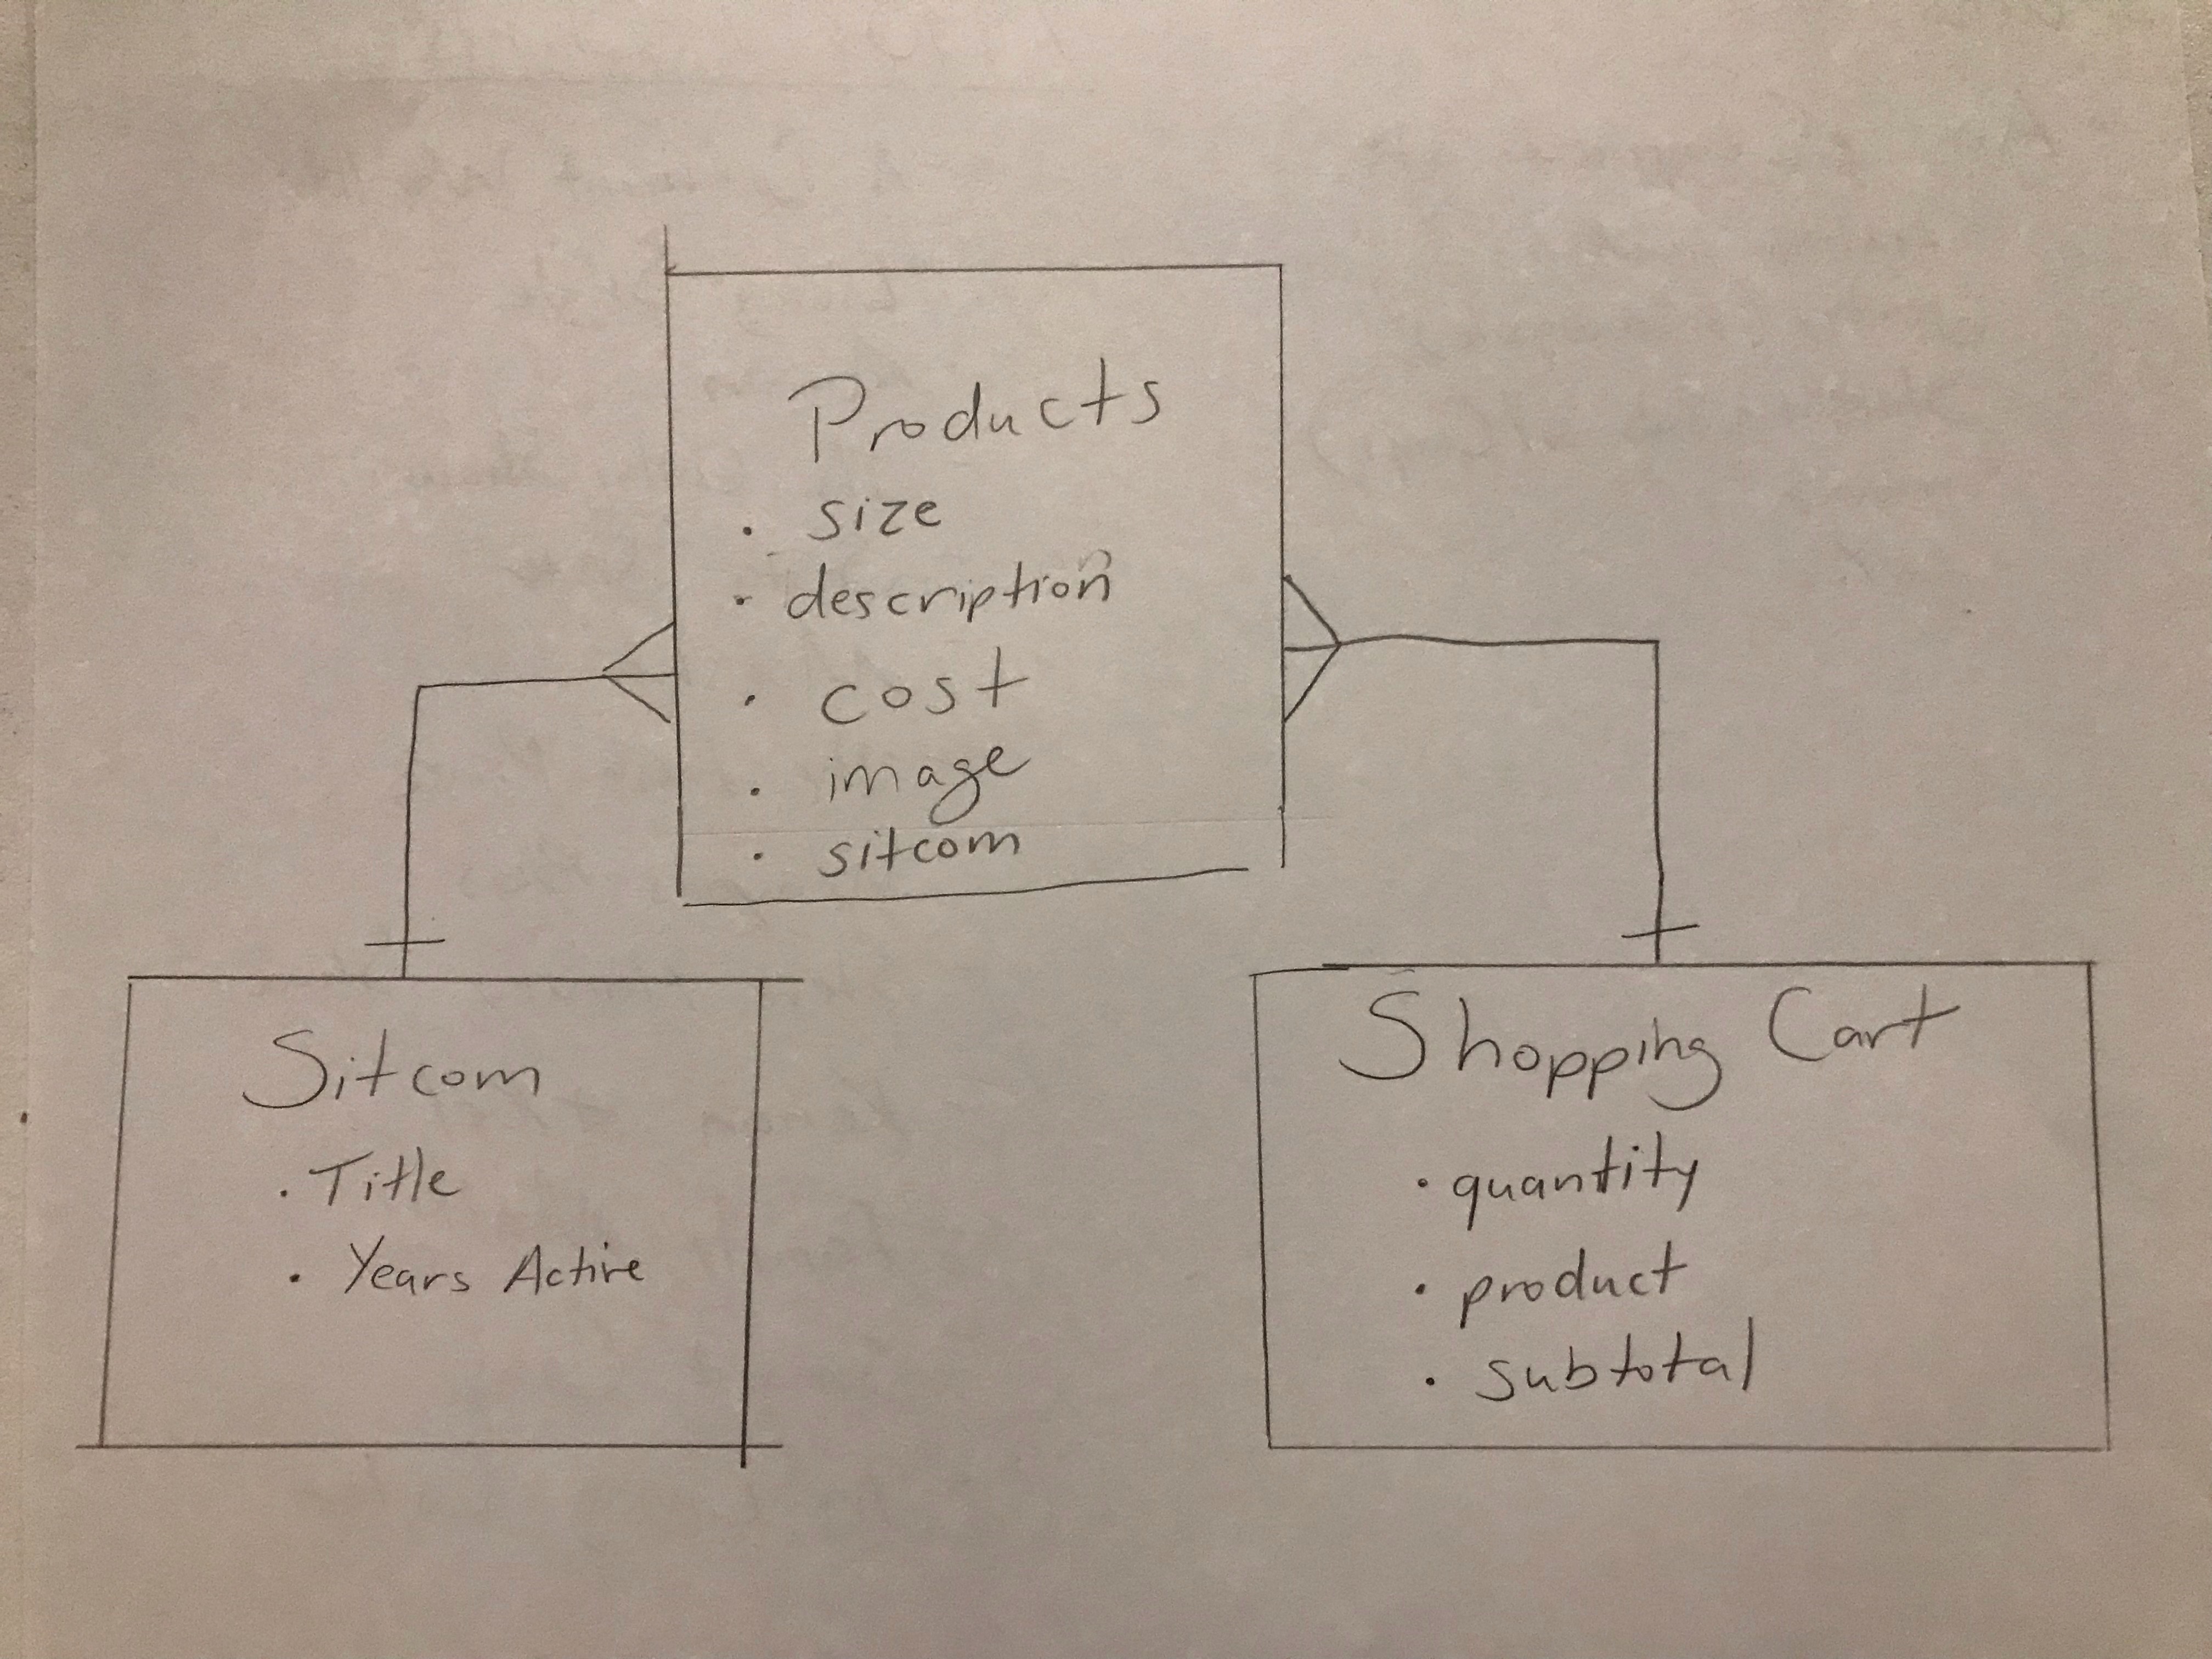 Products
· size
· description
· cost
· image
· sitcom
Sitcom
· Title
· Years Active
Shopping Cart
· quantity
· product
· subtotal